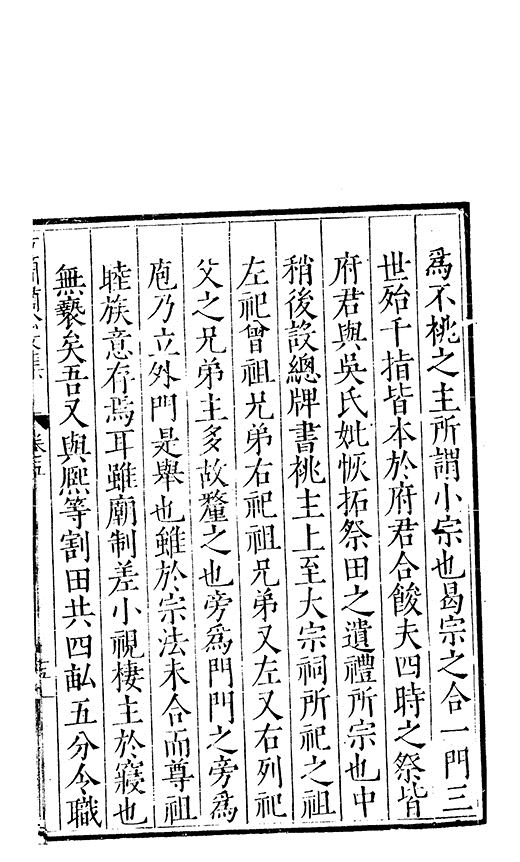 爲不祧之主所謂小宗也曷宗之合一門三
世殆千指皆本於府君合餕夫四時之祭皆
府君與吳氏妣恢拓祭田之遺禮所宗也中
稍後設總牌書祧主上至大宗祠所祀之祖
左祀曾祖兄弟右祀祖兄弟又左又右列祀
父之兄弟主多故釐之也旁爲門門之旁爲
庖乃立外門是舉也雖於宗法未合而尊祖
睦族意存焉耳雖廟制差小視棲主於寢也
無褻矣吾又與熈等割田共四畝五分令職
卷五